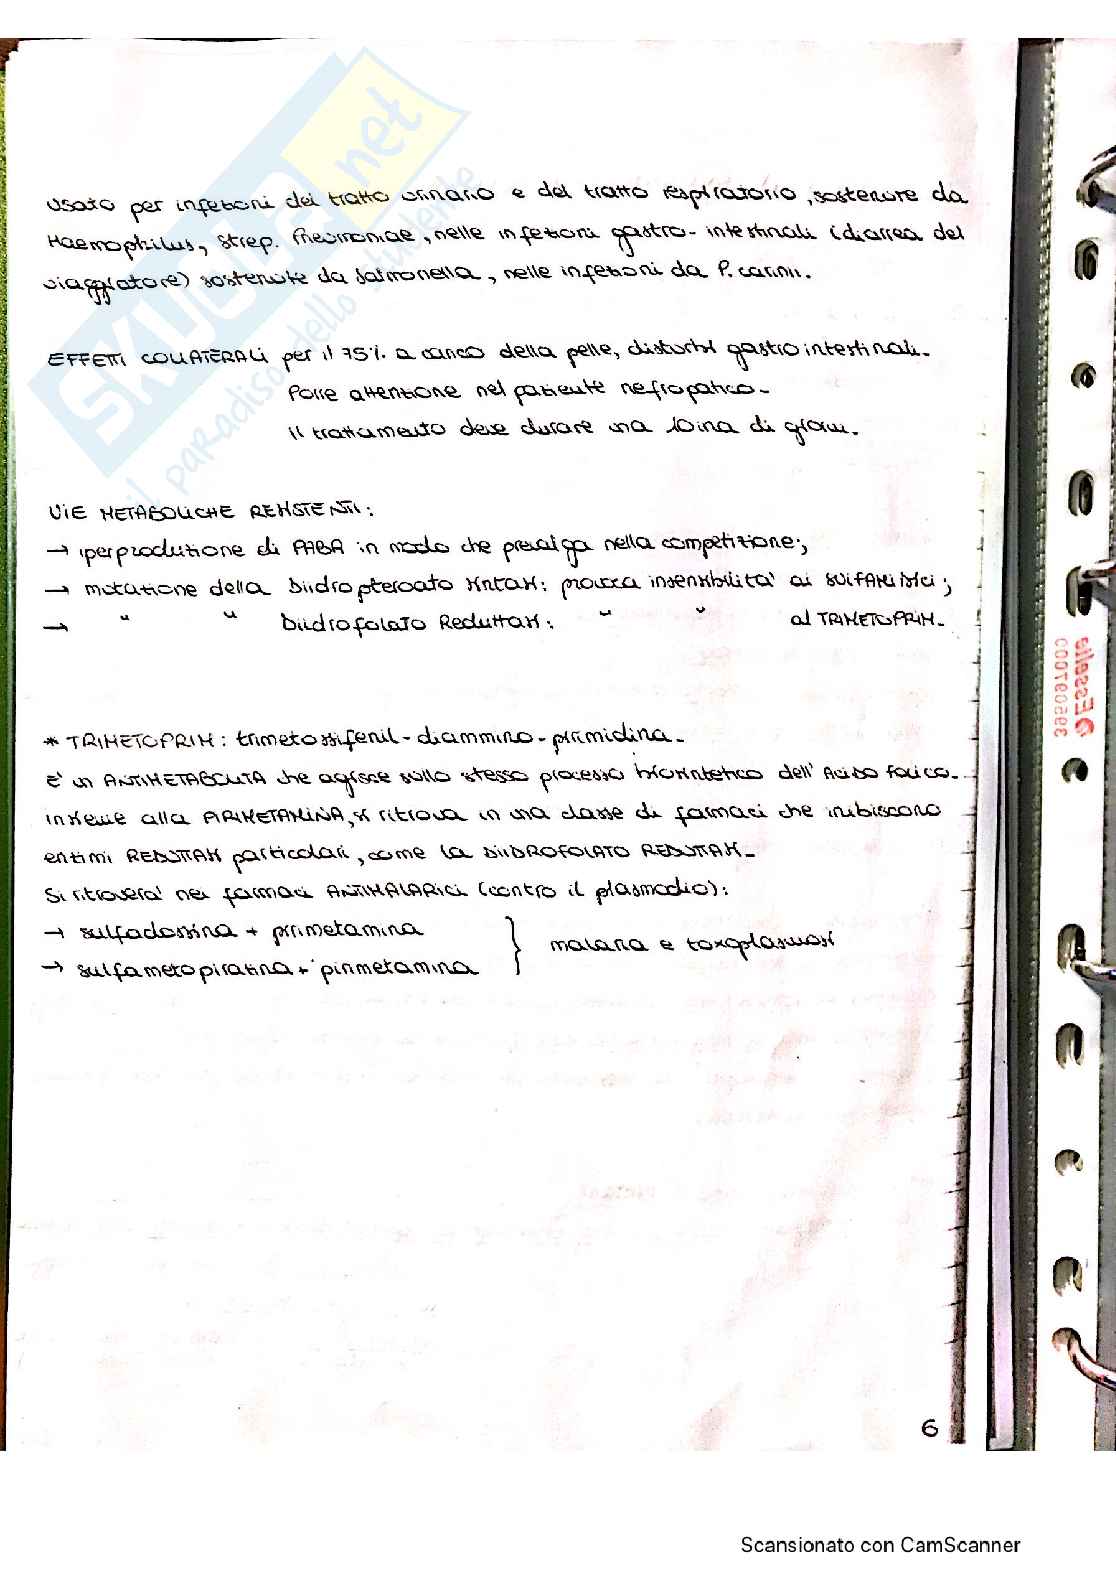 SKUOLA.net
il paradiso dello studente
Usato per infezioni del tratto urinario e del tratto respiratorio, sostenute da
Haemophilus, Strep. Pneumoniae, nelle infezioni gastro-intestinali (diarrea del
viaggiatore) sostenute da Salmonella, nelle infezioni da P. carinii.
EFFETTI COLLATERALI per il 75% a carico della pelle, disturbi gastrointestinali.
Porre attenzione nel paziente nefropatico.
Il trattamento deve durare una 10ina di giorni.
VIE METABOLICHE RESISTENTI:
→ iperproduzione di PABA in modo che prevalga nella competizione;
→ mutazione della Diidropteroato sintasi: provoca insensibilità ai SULFAMIDICI;
→ " " Diidrofolato Reduttasi: " " al TRIMETOPRIM.
* TRIMETOPRIM: trimetossifenil-diammino-pirimidina.
E' un ANTIMETABOLITA che agisce sullo stesso processo biosintetico dell'Acido folico.
Insieme alla PIRIMETAMINA, si ritrova in una classe di farmaci che inibiscono
enzimi REDUTTASI particolari, come la DIIDROFOLATO REDUTTASI.
Si ritroverà nei farmaci ANTIMALARICI (contro il plasmodio):
→ sulfadossina + pirimetamina
→ sulfametopirazina + pirimetamina } malaria e toxoplasmosi
Esselte
C00790593
6
Scansionato con CamScanner